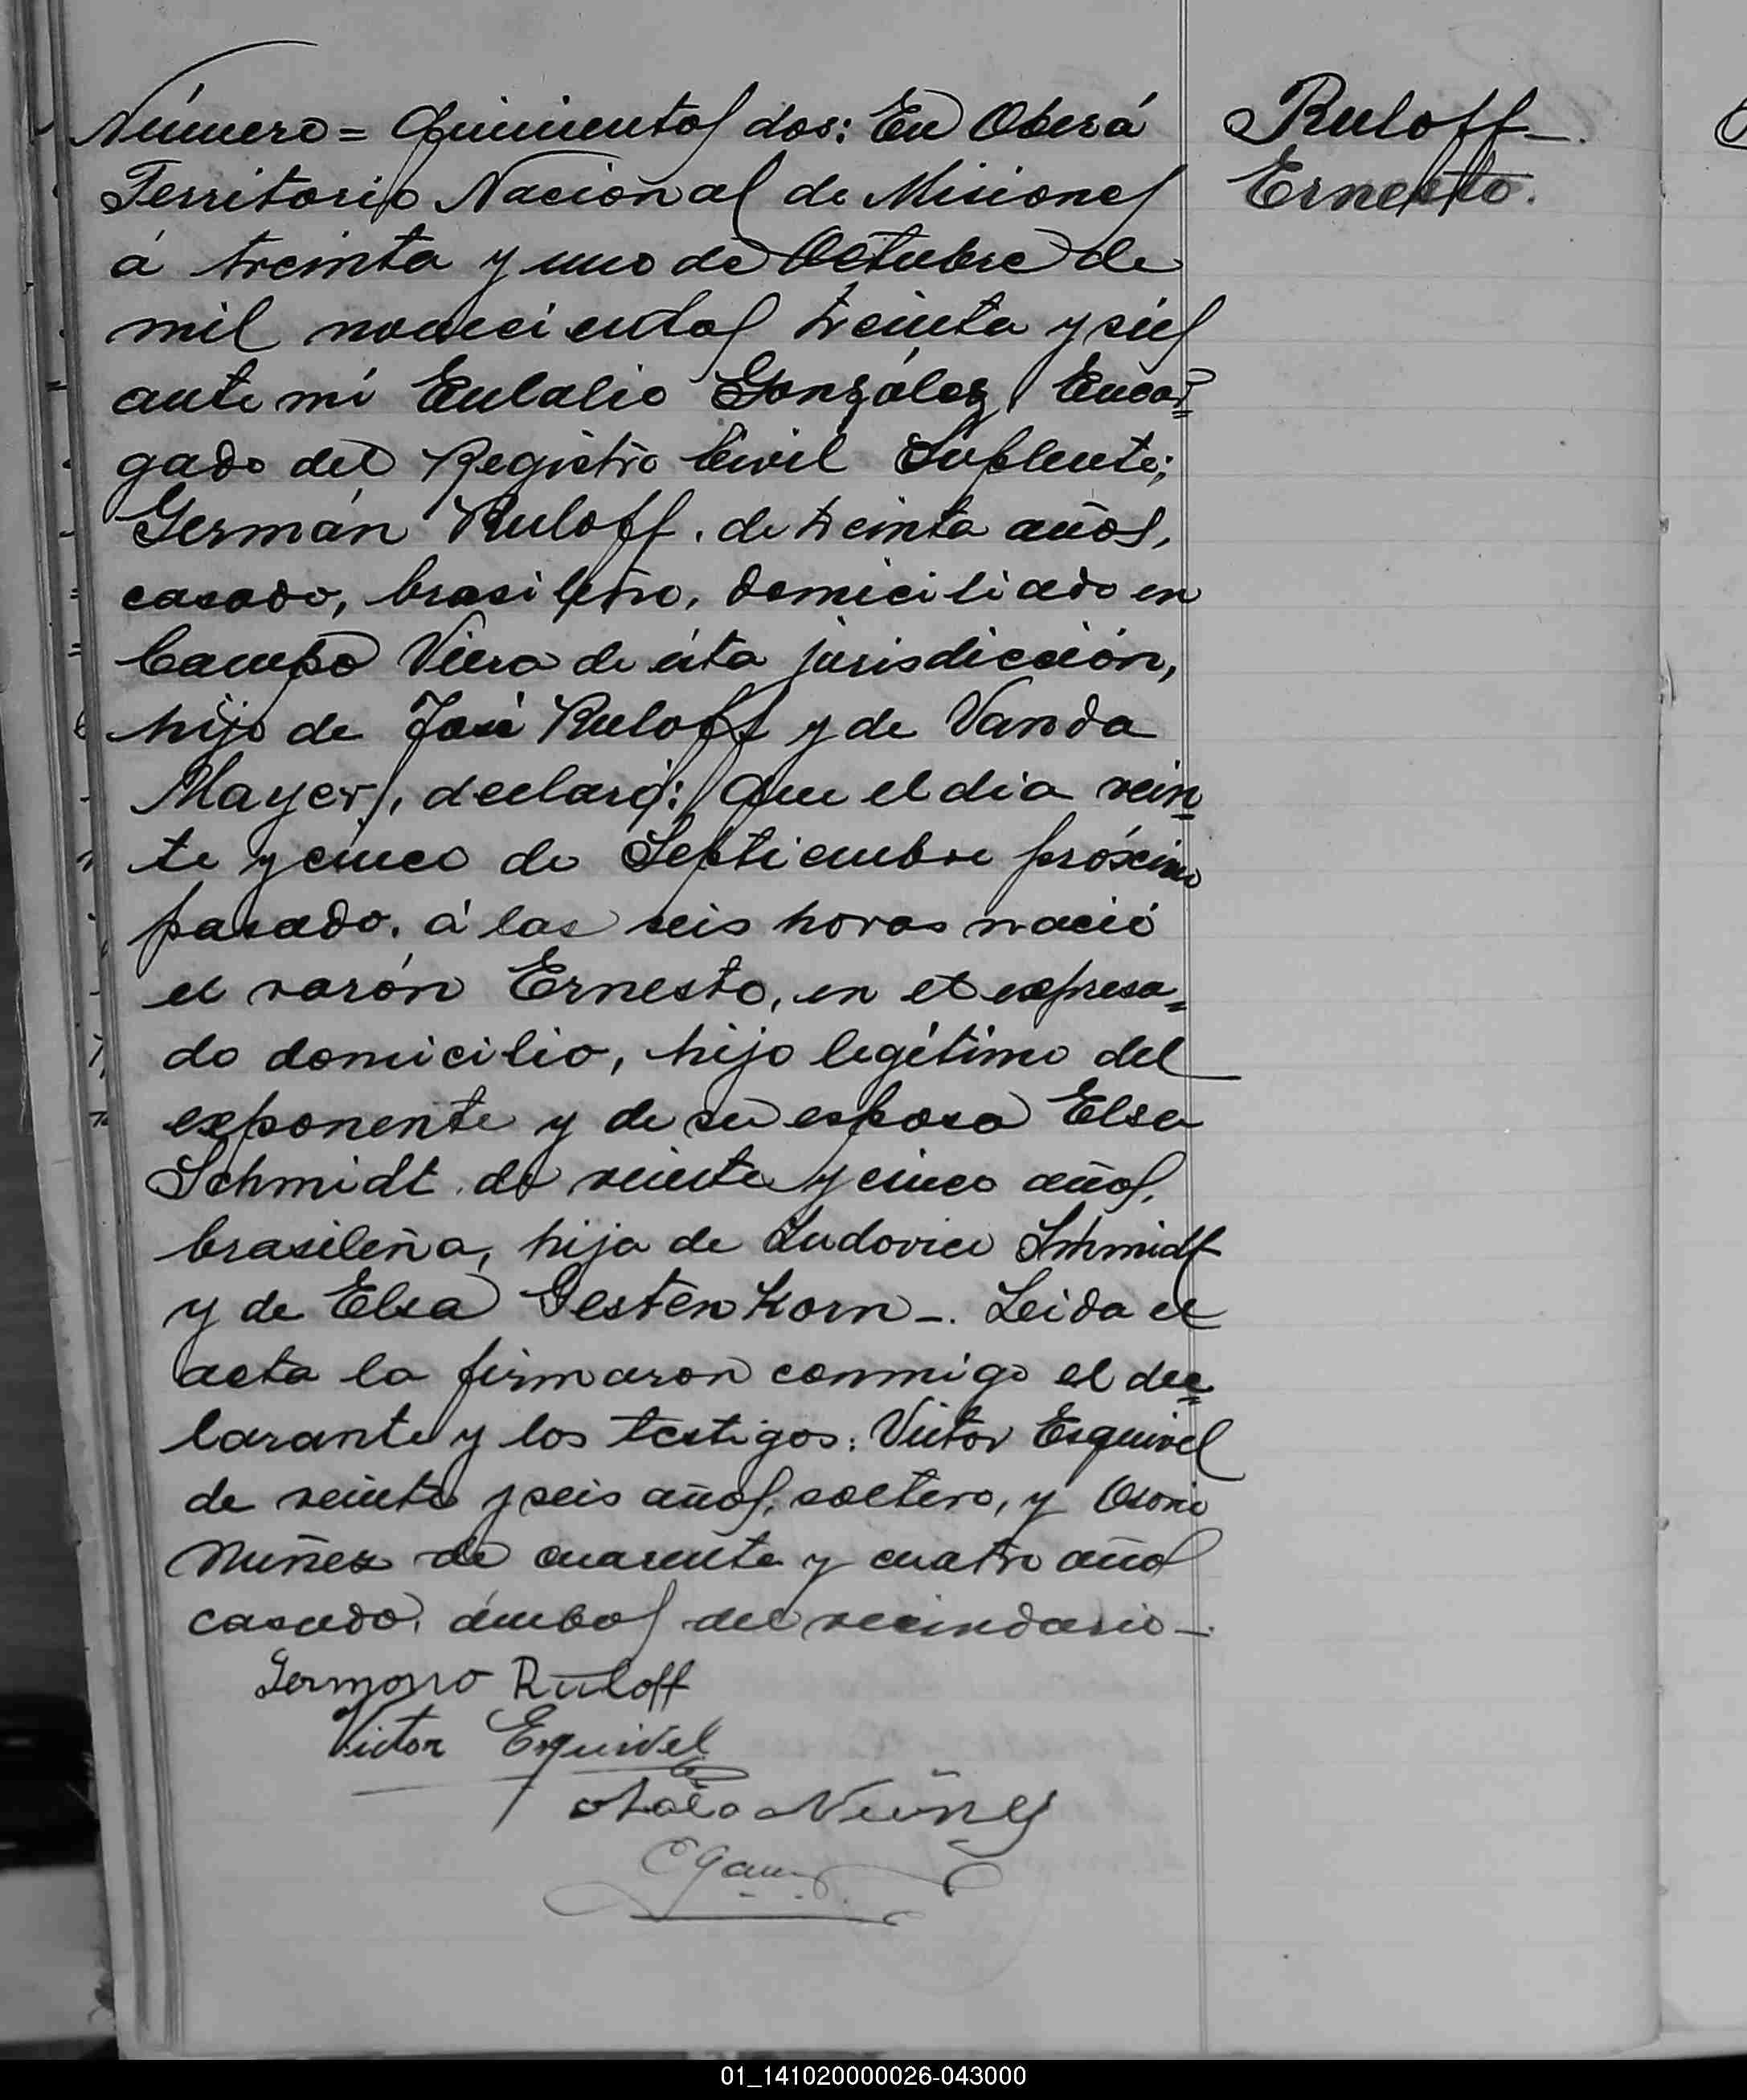 Número = Quinientos dos: En Oberá
Ruloff-.
Territorio Nacional de Misiones
Ernesto.
á treinta y uno de Octubre de
mil novecientos treinta y seis
ante mí Eulalio González, Encar=
gado del Registro Civil Suplente;
Germán Ruloff, de treinta años,
casado, brasileño, domiciliado en
Campo Viera de ésta jurisdicción,
hijo de José Ruloff y de Vanda
Mayer, declaró: Que el dia vein=
te y cinco de Septiembre próximo
pasado, á las seis horas nació
el varón Ernesto, en el expresa=
do domicilio, hijo legítimo del
exponente y de su esposa Elsa
Schmidt, de veinte y cinco años,
brasileña, hija de Ludovico Schmidt
y de Elsa Gestenkorn-. Leida el
acta la firmaron conmigo el dec=
larante y los testigos: Victor Esquivel
de veinte y seis años, soltero, y
Nuñez de cuarenta y cuatro años
casado, ámbos del vecindario-.
Germano Ruloff
Victor Esquivel
Nuñez